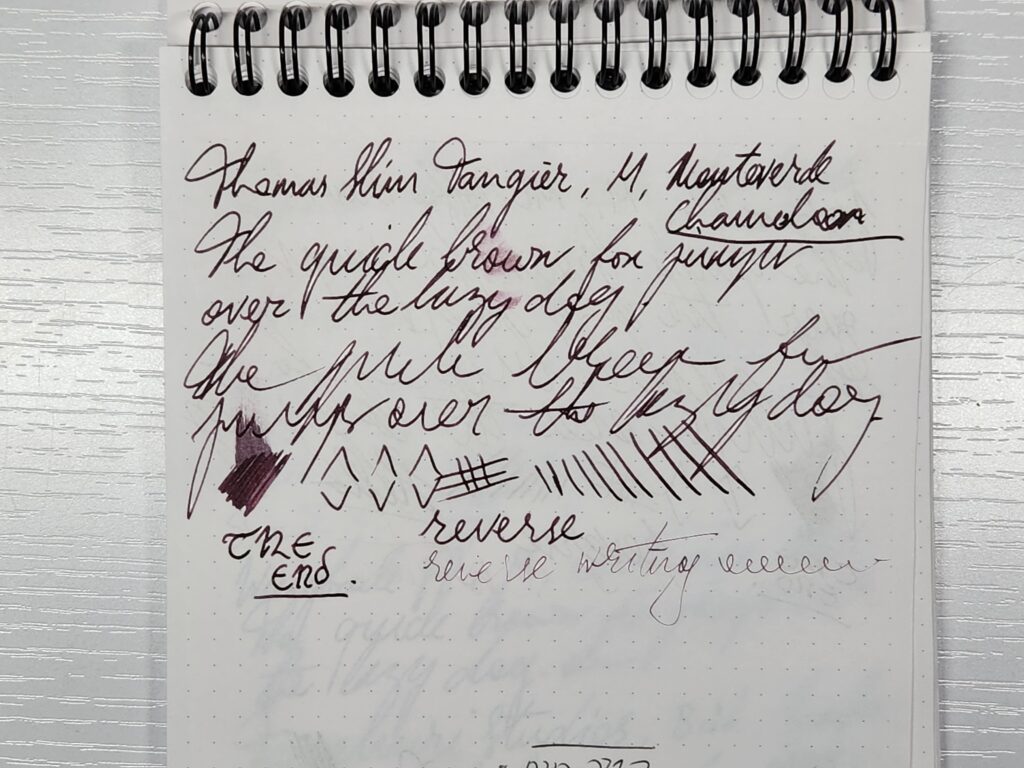 Thomas Slim Tangier, M, Monteverde
The quick brown fox jumps
over the lazy dog
The quick fox
jumps over the lazy dog
reverse
THE
END.
reverse writing